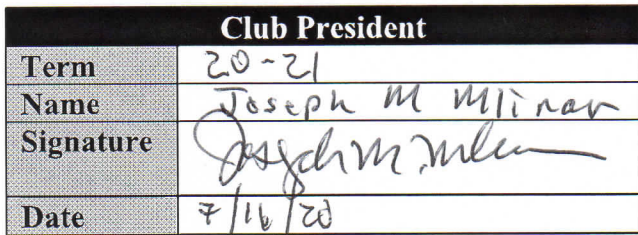 Club President
Term 20-21
Name Joseph M Mlinar
Signature Joseph M. Mlinar
Date 7/16/20